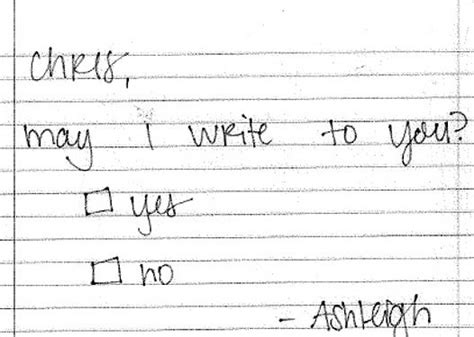 Chris,
may I write to you?
☐ yes
☐ no
- Ashleigh